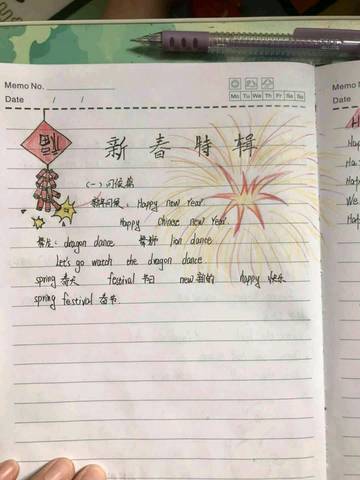 Memo No.
Mo Tu We Th Fr Sa Su
Date / /
福
新春特辑
(一)问候篇
新年问候: Happy new Year.
Happy Chinese new Year.
舞龙: dragon dance 舞狮 lion dance
Let's go watch the dragon dance
spring 春天 festival 节日 new 新的 happy 快乐
spring festival 春节
H
Hap
Ha
Ha
We
Ha